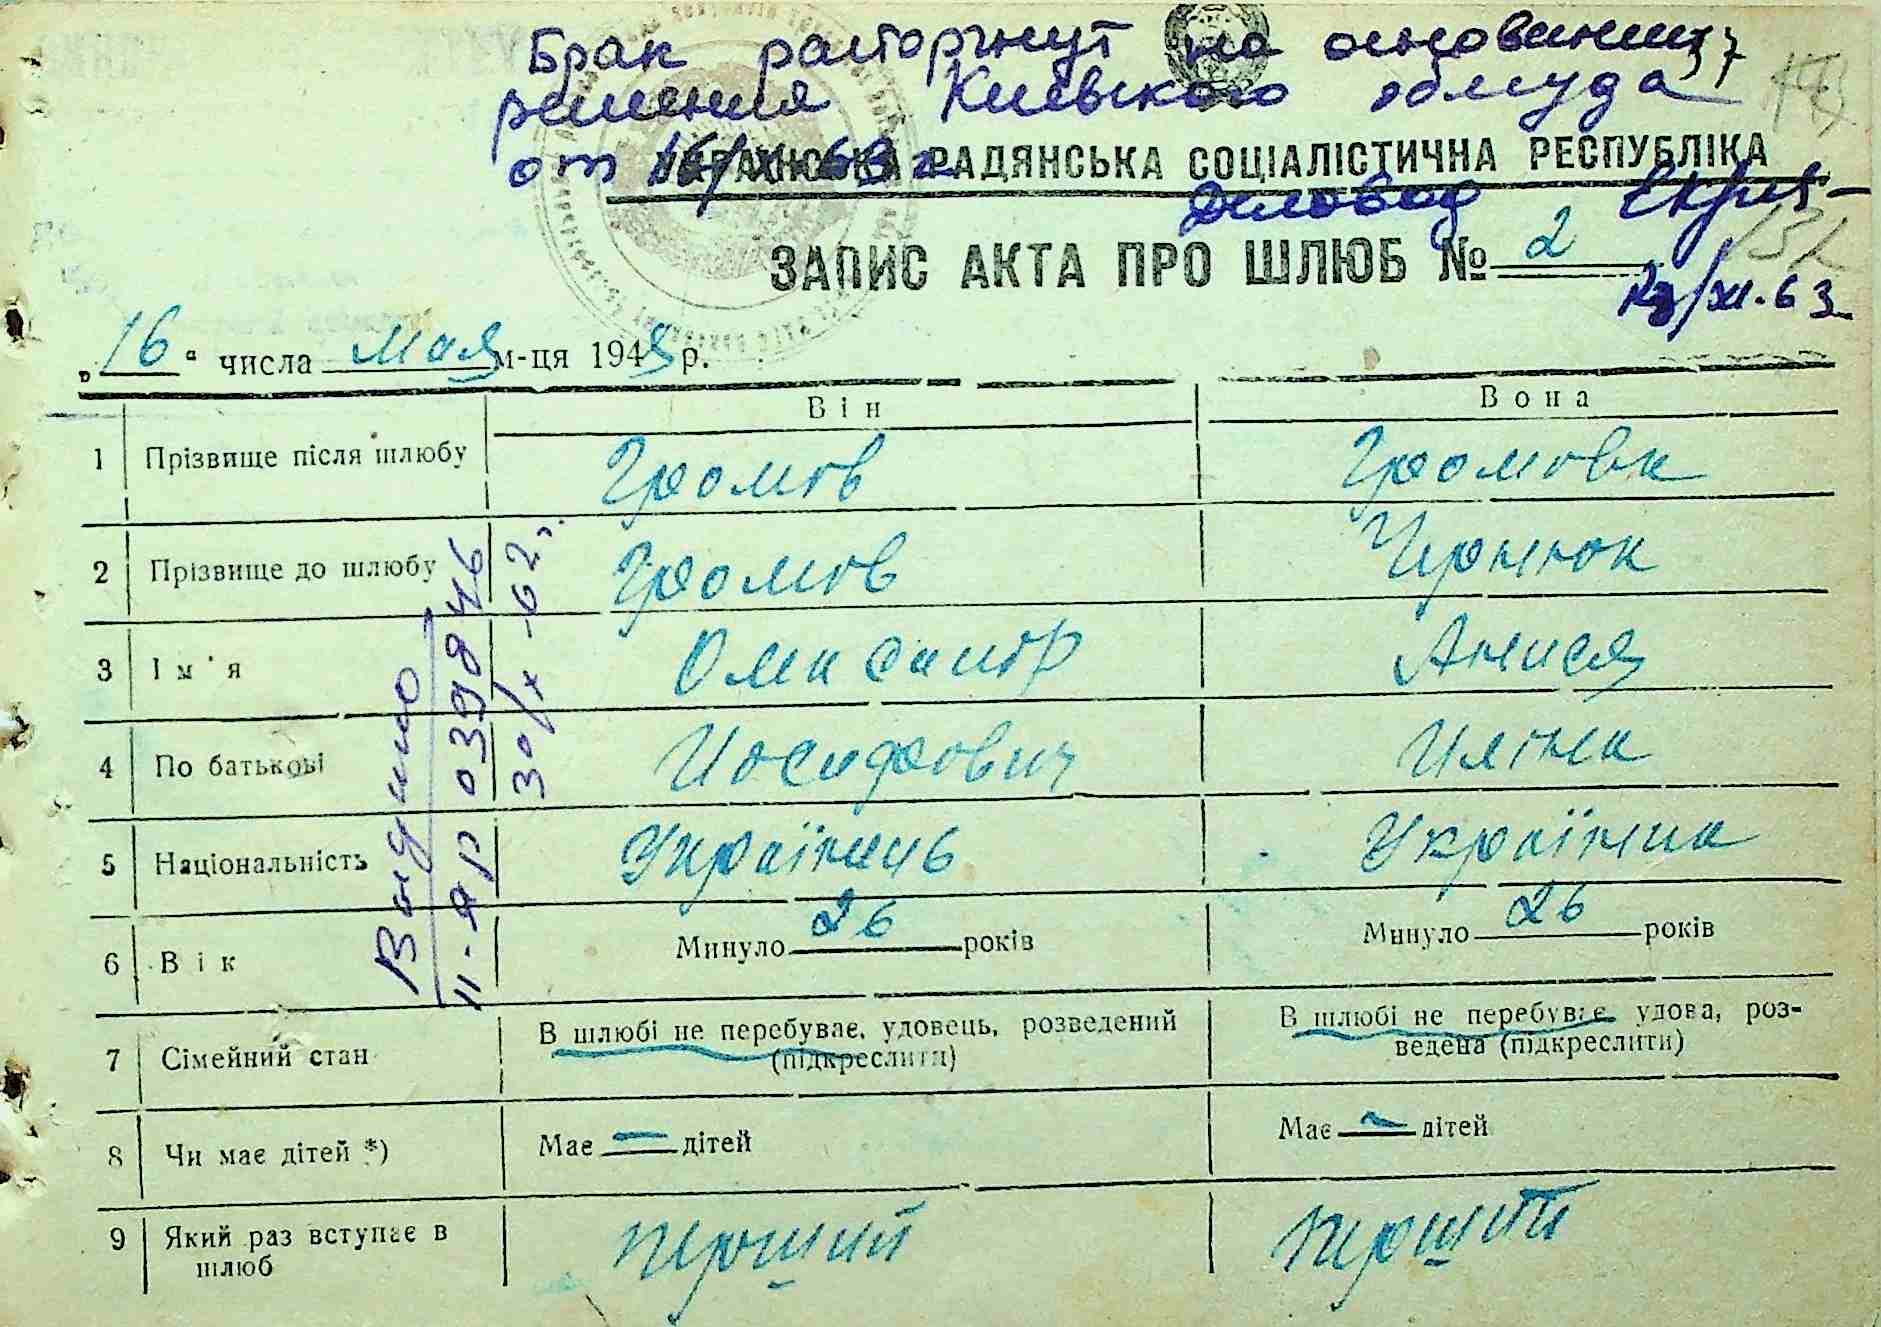 Брак расторгнут на основании
решения Киевского облсуда
от 16/XI-63 г.
УКРАЇНСЬКА РАДЯНСЬКА СОЦІАЛІСТИЧНА РЕСПУБЛІКА
ЗАПИС АКТА ПРО ШЛЮБ № 2
XII-63
„16“ числа мая м-ця 1948 р.
Він Вона
1 Прізвище після шлюбу Громов Громова
2 Прізвище до шлюбу Громов
3 Ім'я Олександр Анися
4 По батькові Иосифович Илівна
5 Національність Українець Українка
6 Вік Минуло 26 років Минуло 26 років
7 Сімейний стан В шлюбі не перебуває, удовець, розведений (підкреслити) В шлюбі не перебуває удова, роз-
ведена (підкреслити)
8 Чи має дітей *) Має — дітей Має — дітей
9 Який раз вступає в
шлюб перший перший
Видано
II-ЯР 039846
30/X-62 г.